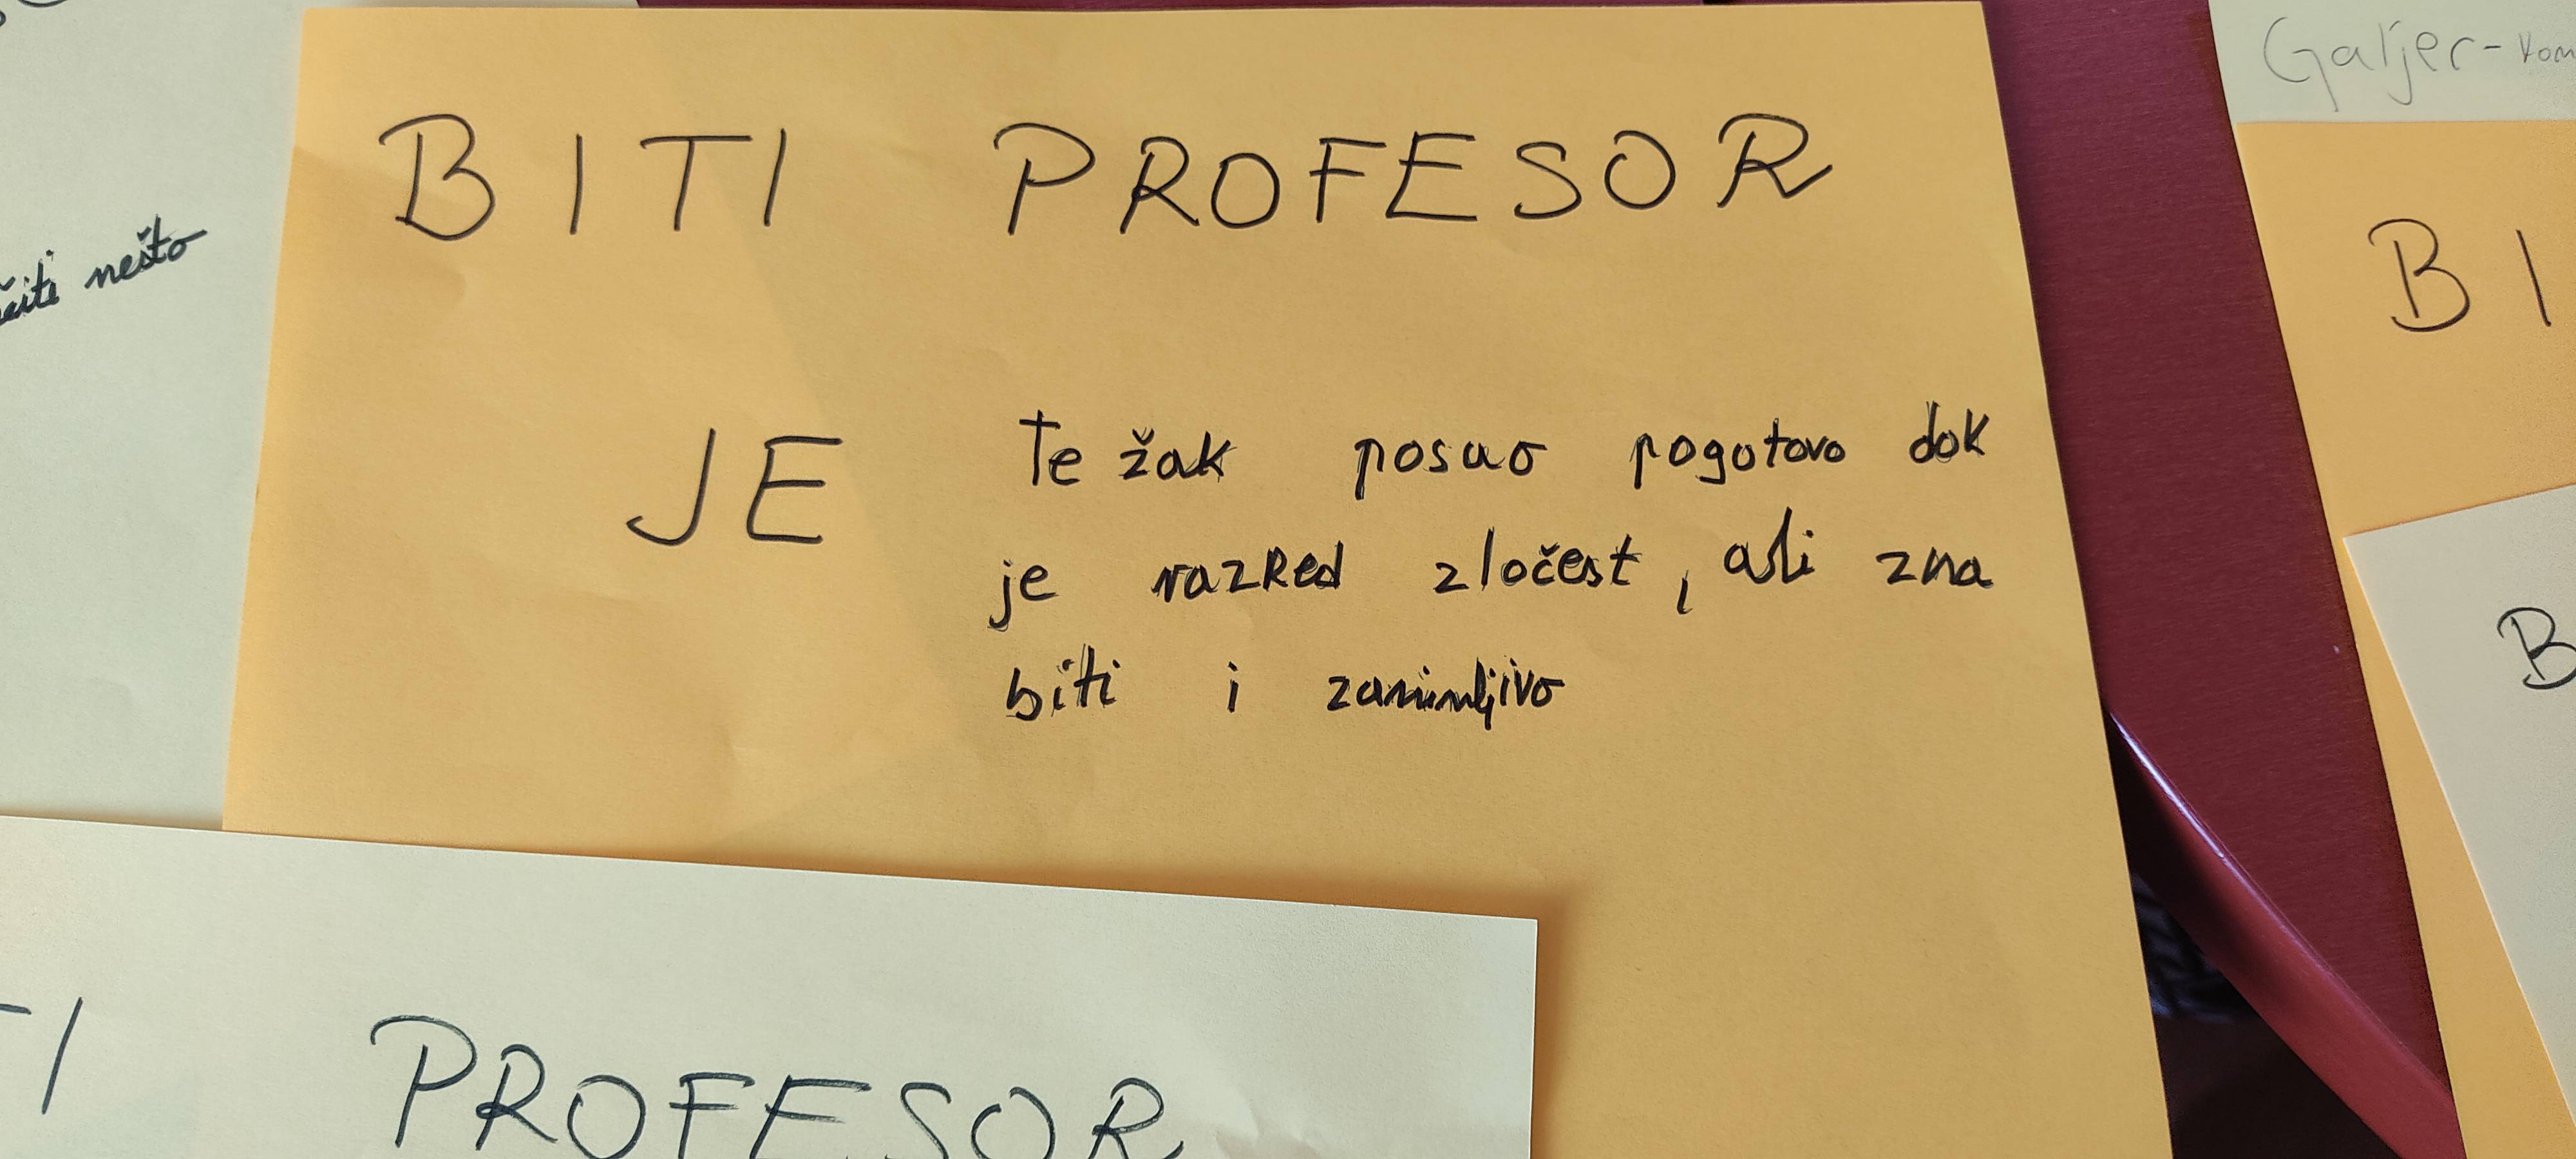 Galjer -
nešto
BITI PROFESOR
JE težak posao pogotovo dok
je razred zločest, ali zna
biti i zanimljivo
BI
B
TI PROFESOR